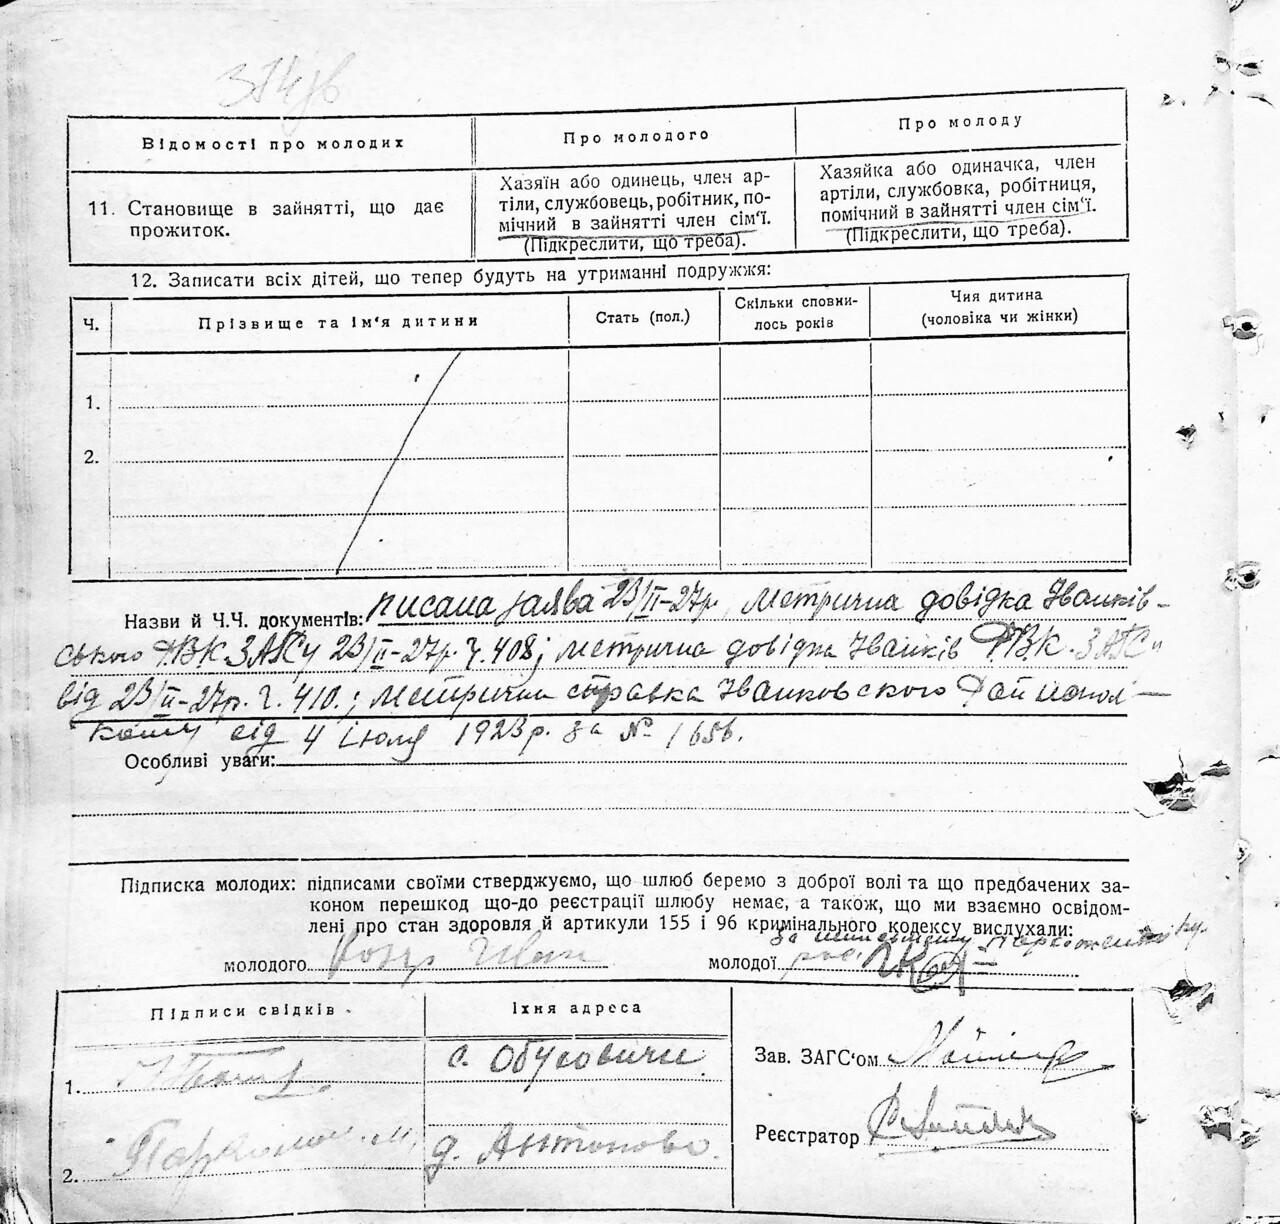 374зв
Відомості про молодих
Про молодого
Про молоду
11. Становище в зайнятті, що дає
прожиток.
Хазяїн або одинець, член ар-
тіли, службовець, робітник, по-
мічний в зайнятті член сім‘ї.
(Підкреслити, що треба).
Хазяйка або одиначка, член
артіли, службовка, робітниця,
помічний в зайнятті член сім‘ї.
(Підкреслити, що треба).
12. Записати всіх дітей, що тепер будуть на утриманні подружжя:
Ч.
Прізвище та ім‘я дитини
Стать (пол.)
Скільки сповни-
лось років
Чия дитина
(чоловіка чи жінки)
1.
2.
Назви й Ч.Ч. документів: писана заява 23/II-27р. Метрична довідка Іванків-
ського РВК ЗАГСу 23/II-27р. Ч. 408; метрична довідка Іванків РВК ЗАГСу
від 23/II-27р. Ч. 410.; Метрична справка Іванковского Райиспол-
кому від 4 июля 1923 р. за № 1656.
Особливі уваги:
Підписка молодих: підписами своїми стверджуємо, що шлюб беремо з доброї волі та що предбачених за-
коном перешкод що-до реєстрації шлюбу немає, а також, що ми взаємно освідом-
лені про стан здоровля й артикули 155 і 96 кримінального кодексу вислухали:
молодого Іван
молодої
за
Підписи свідків
Їхня адреса
1.
с. Обуховичи
2. Пархомен
д. Антоново.
Зав. ЗАГС‘ом
Реєстратор